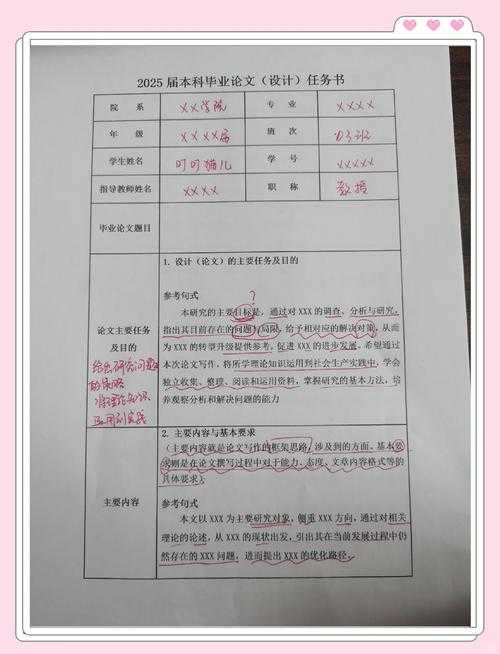 2025 届本科毕业论文（设计）任务书
院 系 ××学院 专 业 ××××
年 级 ××××届 班 次 03班
学生姓名 叮叮猫儿 学 号 ×××××
指导教师姓名 ×××× 职 称 教授
毕业论文题目
1. 设计（论文）的主要任务及目的
参考句式
?
本研究的主要目标是，通过对 XXX 的调查、分析与研究，
指出其目前存在的问题与局限，给予相对应的解决对策，从而
为 XXX 的转型升级提供参考，促进 XXX 的进步发展。希望通过
本次论文写作，将所学理论知识运用到社会生产实践中，学会
独立收集、整理、阅读和运用资料，掌握研究的基本方法，培
养观察分析和解决问题的能力
论文主要任务
及目的
给出研究问题
的策略
将理论知识
运用到实践
2. 主要内容与基本要求
（主要内容就是论文写作的框架思路，涉及到的方面。基本要
求则是在论文撰写过程中对于能力、态度、文章内容格式等的
具体要求）；
主要内容
参考句式
本文以 XXX 为主要研究对象，侧重 XXX 方向，通过对相关
理论的论述，从 XXX 的现状出发，引出其在当前发展过程中仍
然存在的 XXX 问题，进而提出 XXX 的优化路径。